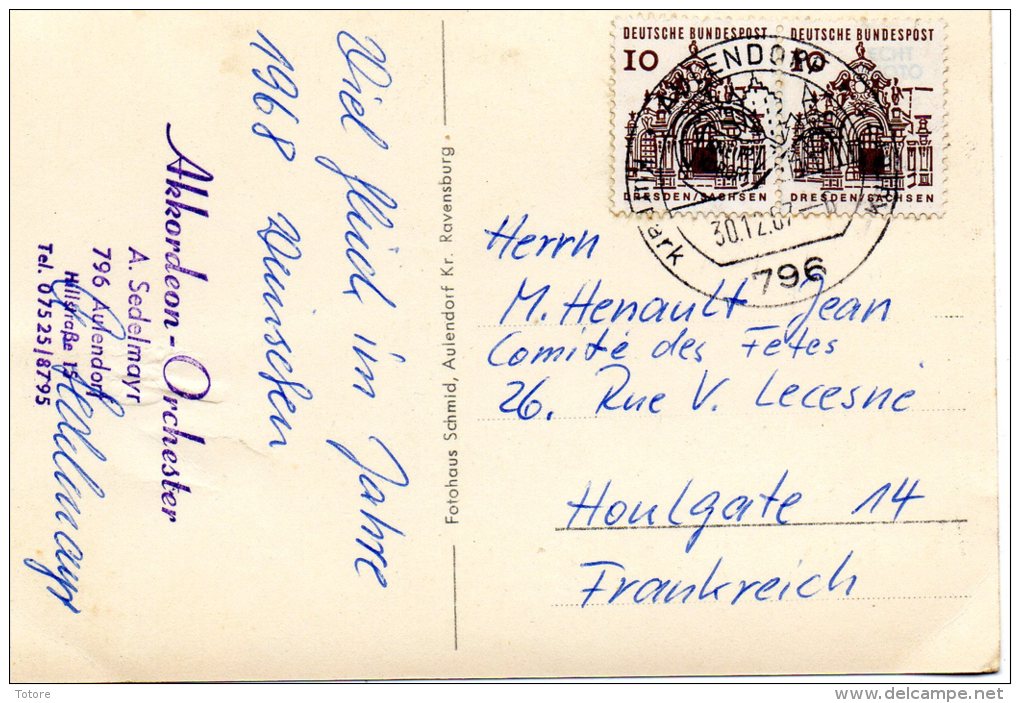 Viel Glück im Jahre
1968 wünschen
Akkordeon-Orchester
A. Sedelmayr
796 Aulendorf
Hillstraße 15
Tel. 07525/8795
Sedelmayr
Fotohaus Schmid, Aulendorf Kr. Ravensburg
DEUTSCHE BUNDESPOST
10
DRESDEN/SACHSEN
DEUTSCHE BUNDESPOST
10
DRESDEN/SACHSEN
AULENDORF
30.12.67
796
Herrn
M. Henault Jean
Comité des Fetes
26. Rue V. Lecesne
Houlgate 14
Frankreich
Totore
www.delcampe.net